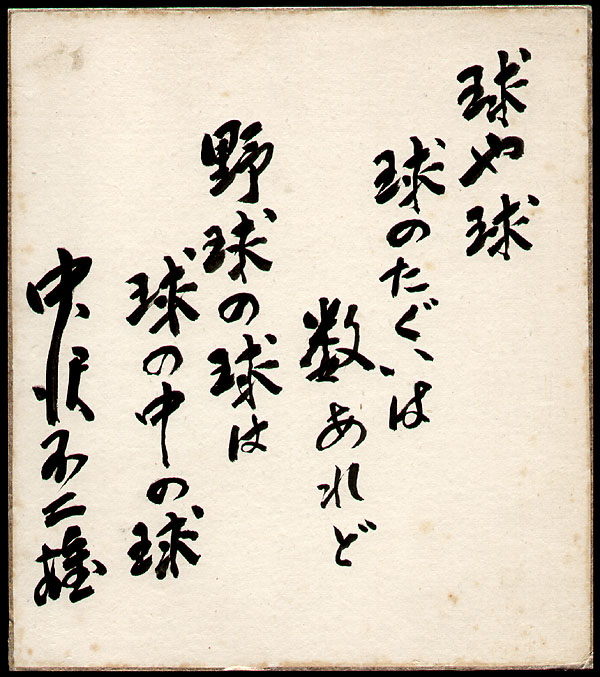 球や球
球のたぐいは
数あれど
野球の球は
球の中の球
中沢不二雄